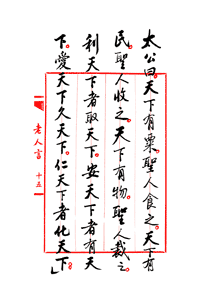 太公曰。天下有粟。聖人食之。天下有
民。聖人收之。天下有物。聖人裁之。
利天下者取天下。安天下者有天
下。愛天下久天下。仁天下者化天下。」
老人言 十五